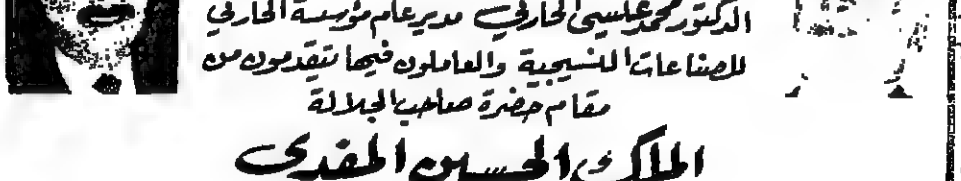 الدكتور محمد عيسى الحارثي مدير عام مؤسسة الحارثي
للصناعات النسيجية والعاملون فيها يتقدمون من
مقام حضرة صاحب الجلالة
الملك الحسين المفدى